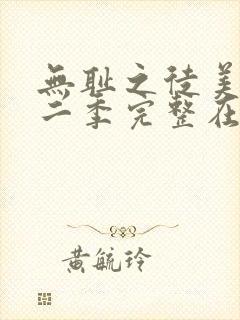 無耻之徒美
二季完整在
黄毓玲